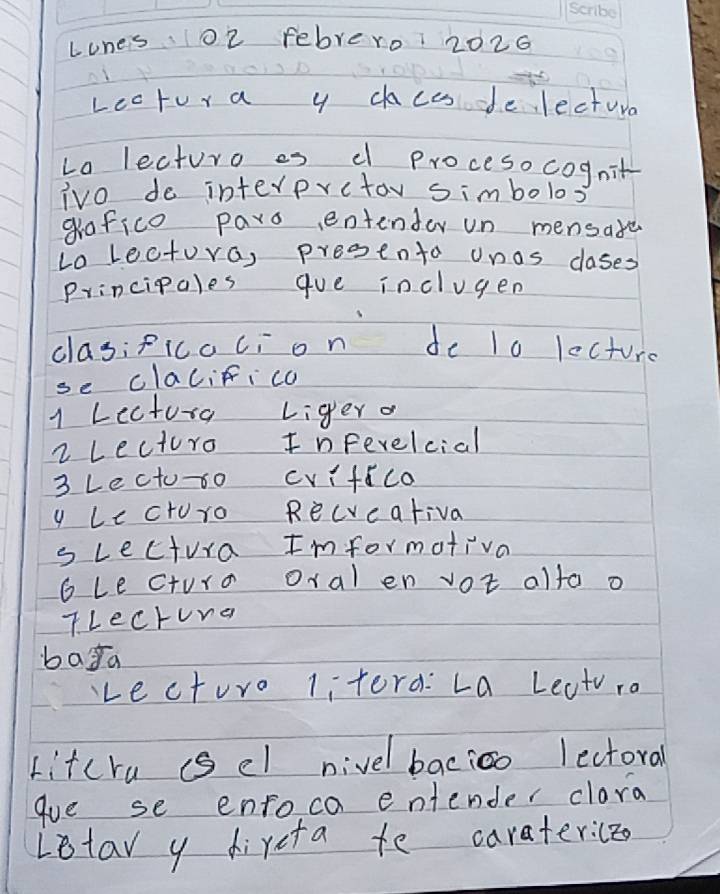 Scribe
Lunes 02 febrero 2026
Lectura y claces de lectura
La lectura es el Procesocognit
ivo de interpretar simbolos
grafico para entender un mensaje
La Lectura, presenta unas clases
Principales que inclugen
clasificacion de la lectura
se clacifica
1 Lectura Ligera
2 Lectura Inferelcial
3 Lectura critica
4 Lectura Recreativa
5 Lectura Imformativa
6 Lectura oral en voz alta o
7 Lectura
baja
Lectura litera: La Lectura
Litera es el nivel bacico lectoral
que se enfoca entender clara
y directa te caratericzo